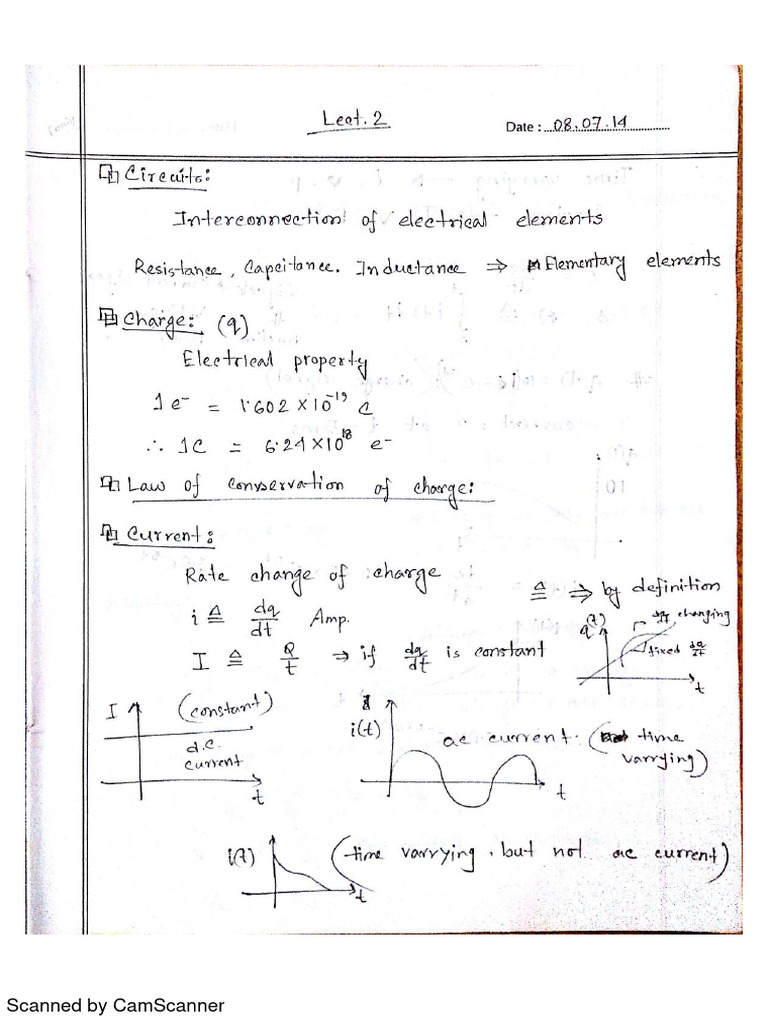 Lect. 2
Date : 08.07.14
Circuits:
Interconnection of electrical elements
Resistance, Capcitance. Inductance ⇒ Elementary elements
Charge: (q)
Electrical property
1 e⁻ = 1.602 × 10⁻¹⁹ C
∴ 1C = 6.24×10¹⁸ e⁻
Law of conservation of charge:
Current:
Rate change of charge
≙ ⇒ by definition
i ≙ dq/dt Amp.
I ≙ Q/t → if dq/dt is constant
q(t)
dq/dt changing
fixed dq/dt
t
I (constant)
d.c.
current
t
i(t)
ac current. (time
varrying)
t
i(t) (time varrying, but not ac current)
t
Scanned by CamScanner